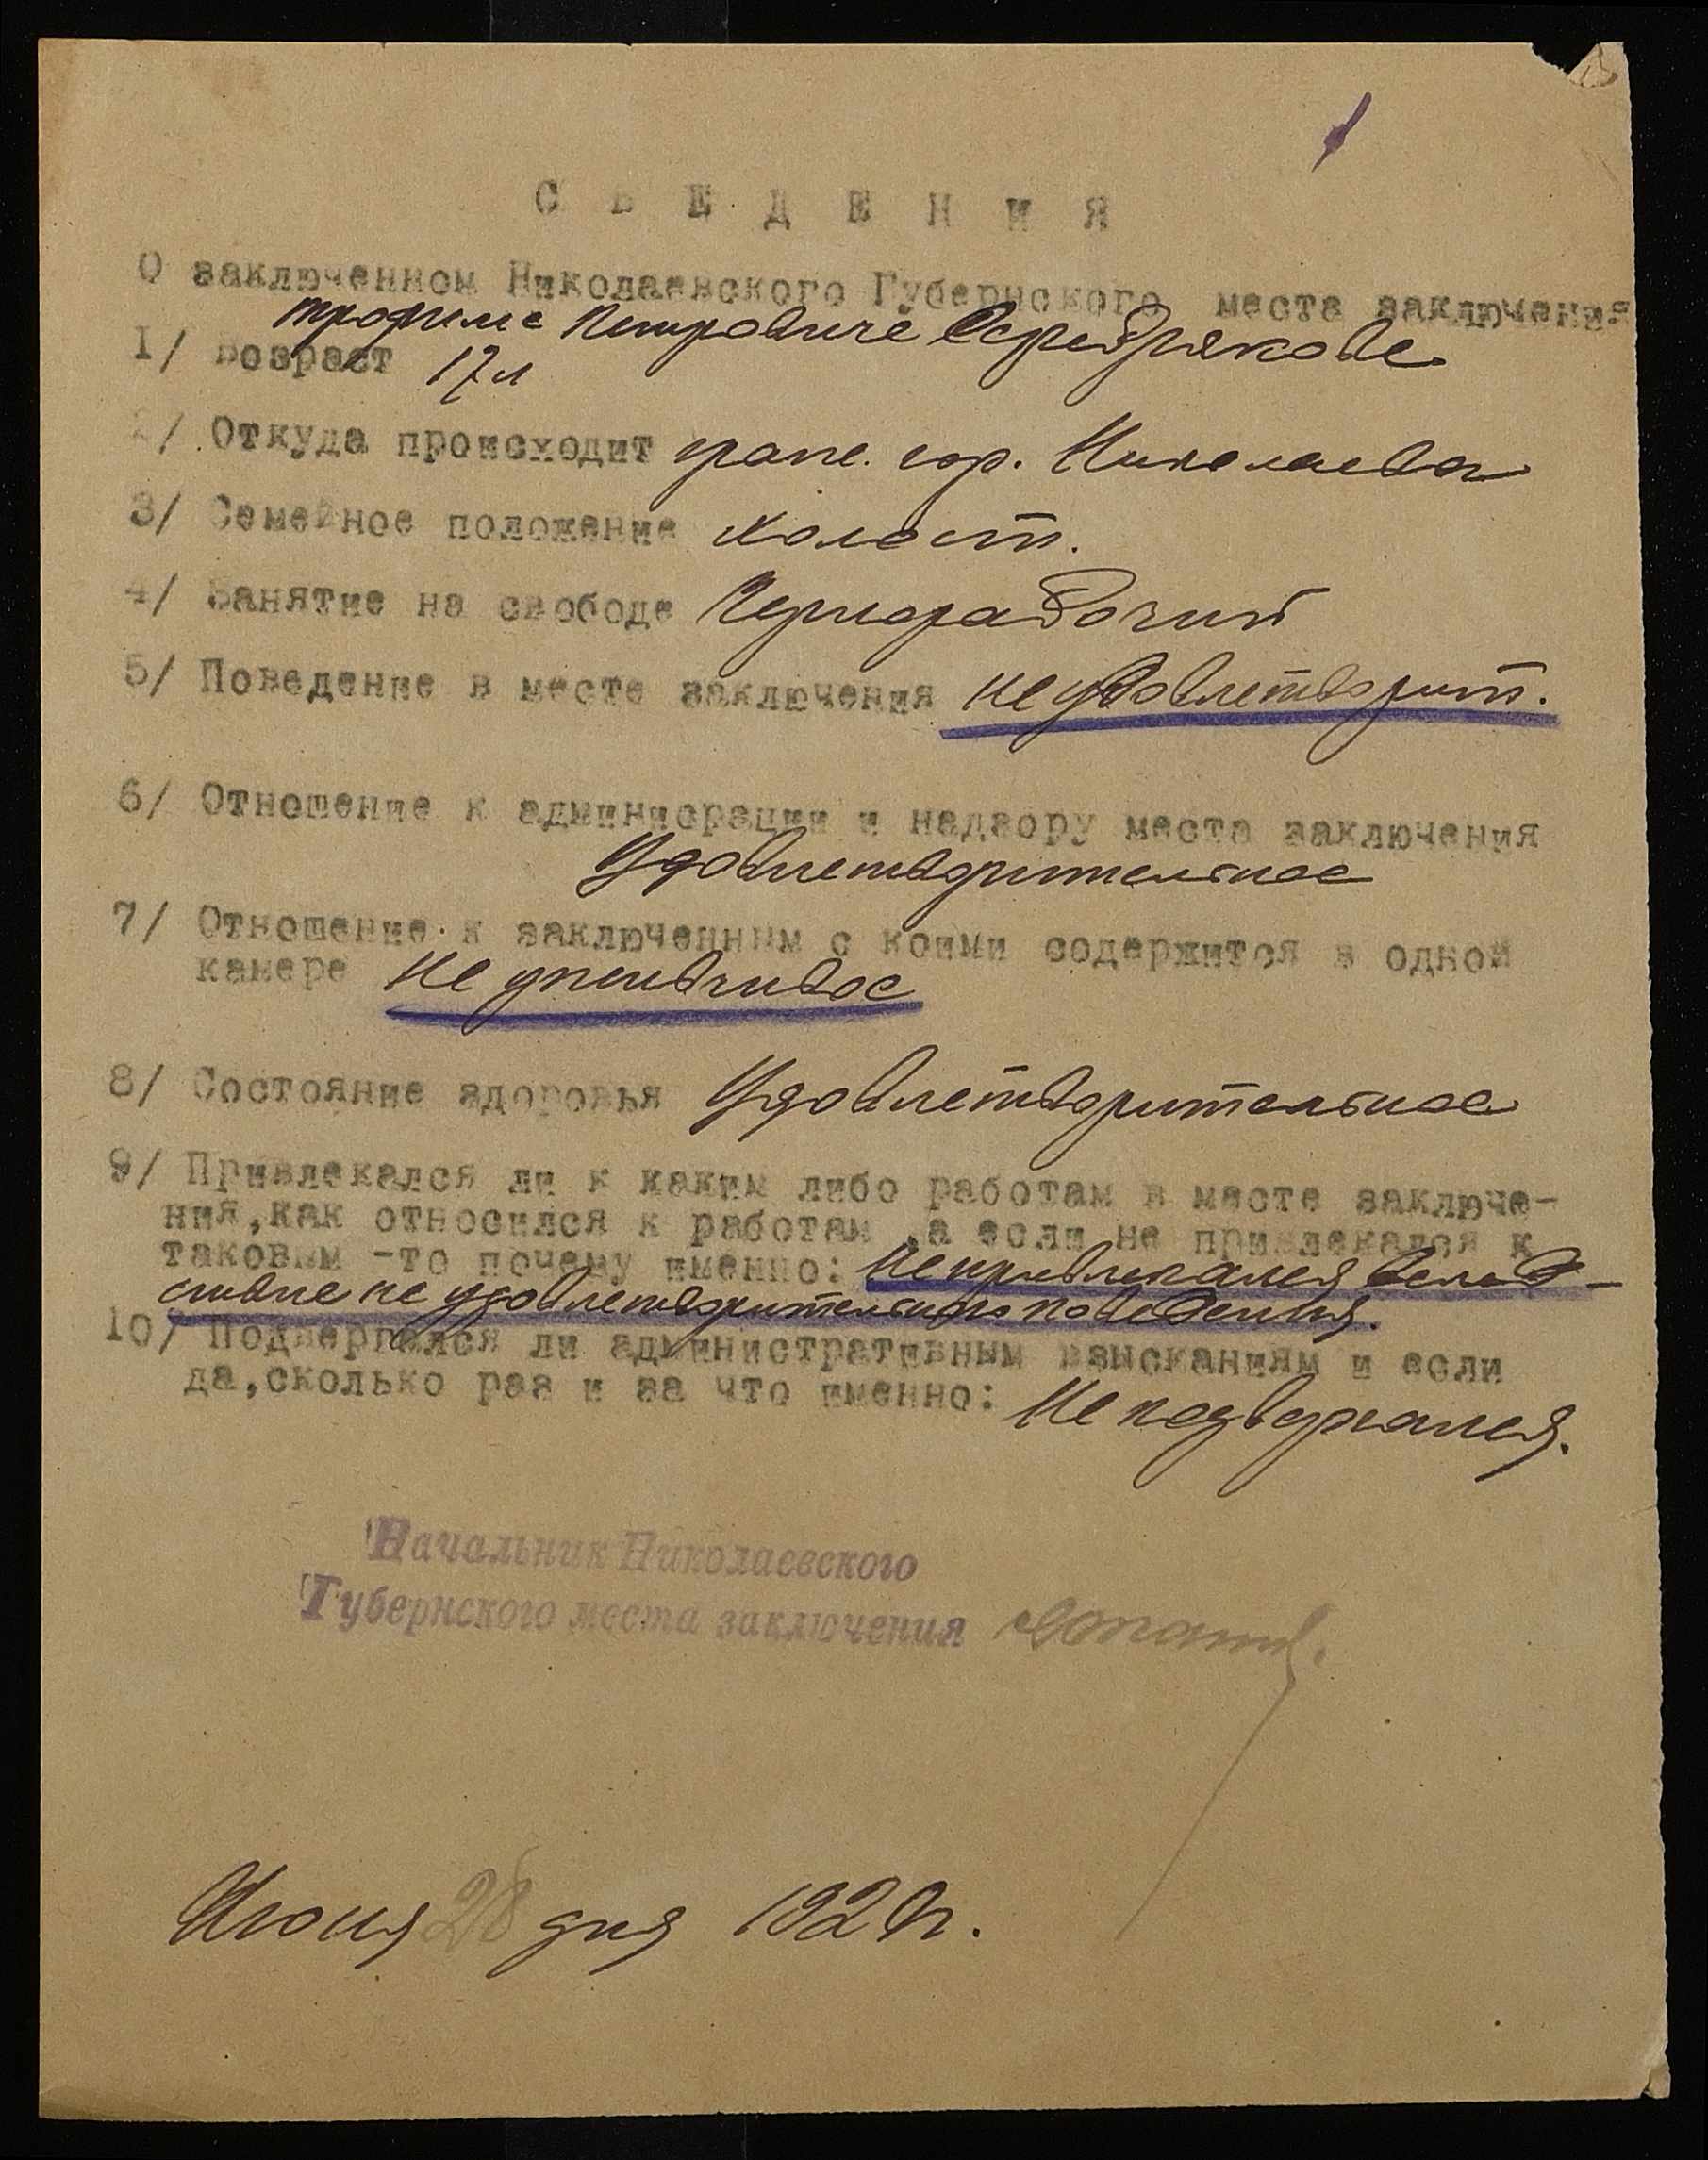 СВЕДЕНИЯ
О заключенном Николаевского Губернского места заключения
Трофиме Петровиче Серебрякове
1/ Возраст 17 л
2/ Откуда происходит гражд. гор. Николаева
3/ Семейное положение холост.
4/ Занятие на свободе Чернорабочий
5/ Поведение в месте заключения не удовлетворит.
6/ Отношение к админисрации и надзору места заключения
Удовлетворительное
7/ Отношение к заключенным с коими содержится в одной
камере Не уживчивое
8/ Состояние здоровья Удовлетворительное
9/ Привлекался ли к каким либо работам в месте заключе-
ния,как относился к работам ,а если не привлекался к
таковым -то почему именно: Не привлекался вслед-
ствие не удовлетворительного поведения.
10/ Подвергался ли административным взысканиям и если
да,сколько раз и за что именно: Не подвергался.
Начальник Николаевского
Губернского места заключения
Июня 28 дня 192 г.